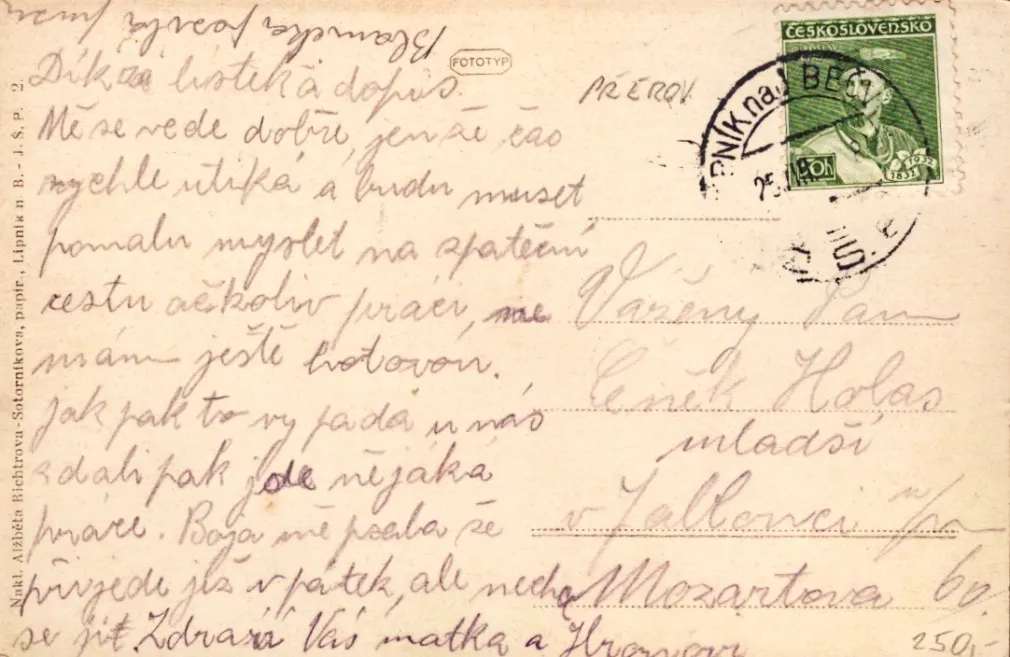 Blanička posílá
FOTOTYP
Dík za lísteк a dopis.
Mě se vede dobře, jen že čas
rychle utíká a budu muset
pomalu myslet na zpáteční
cestu ačkoliv práci, ne
mám ještě hotovou.
jak pak to vypadá u nás
zdali pak jde nějáká
práce. Boža mě psala že
přijede již v pátek, ale nechá
se jít. Zdraví Vás matka a Hronovi
PŘEROV
ČESKOSLOVENSKO
50h
1832 1932
LIPNÍK nad BEČ
25.
Vážený Pan
Čeněk Holas
mladší
v Jablonci n/n
Mozartova 60.
250,-
Nakl. Alžběta Richtrova-Sotorníkova, papír., Lipník n. B. - J. Š. P. 2.